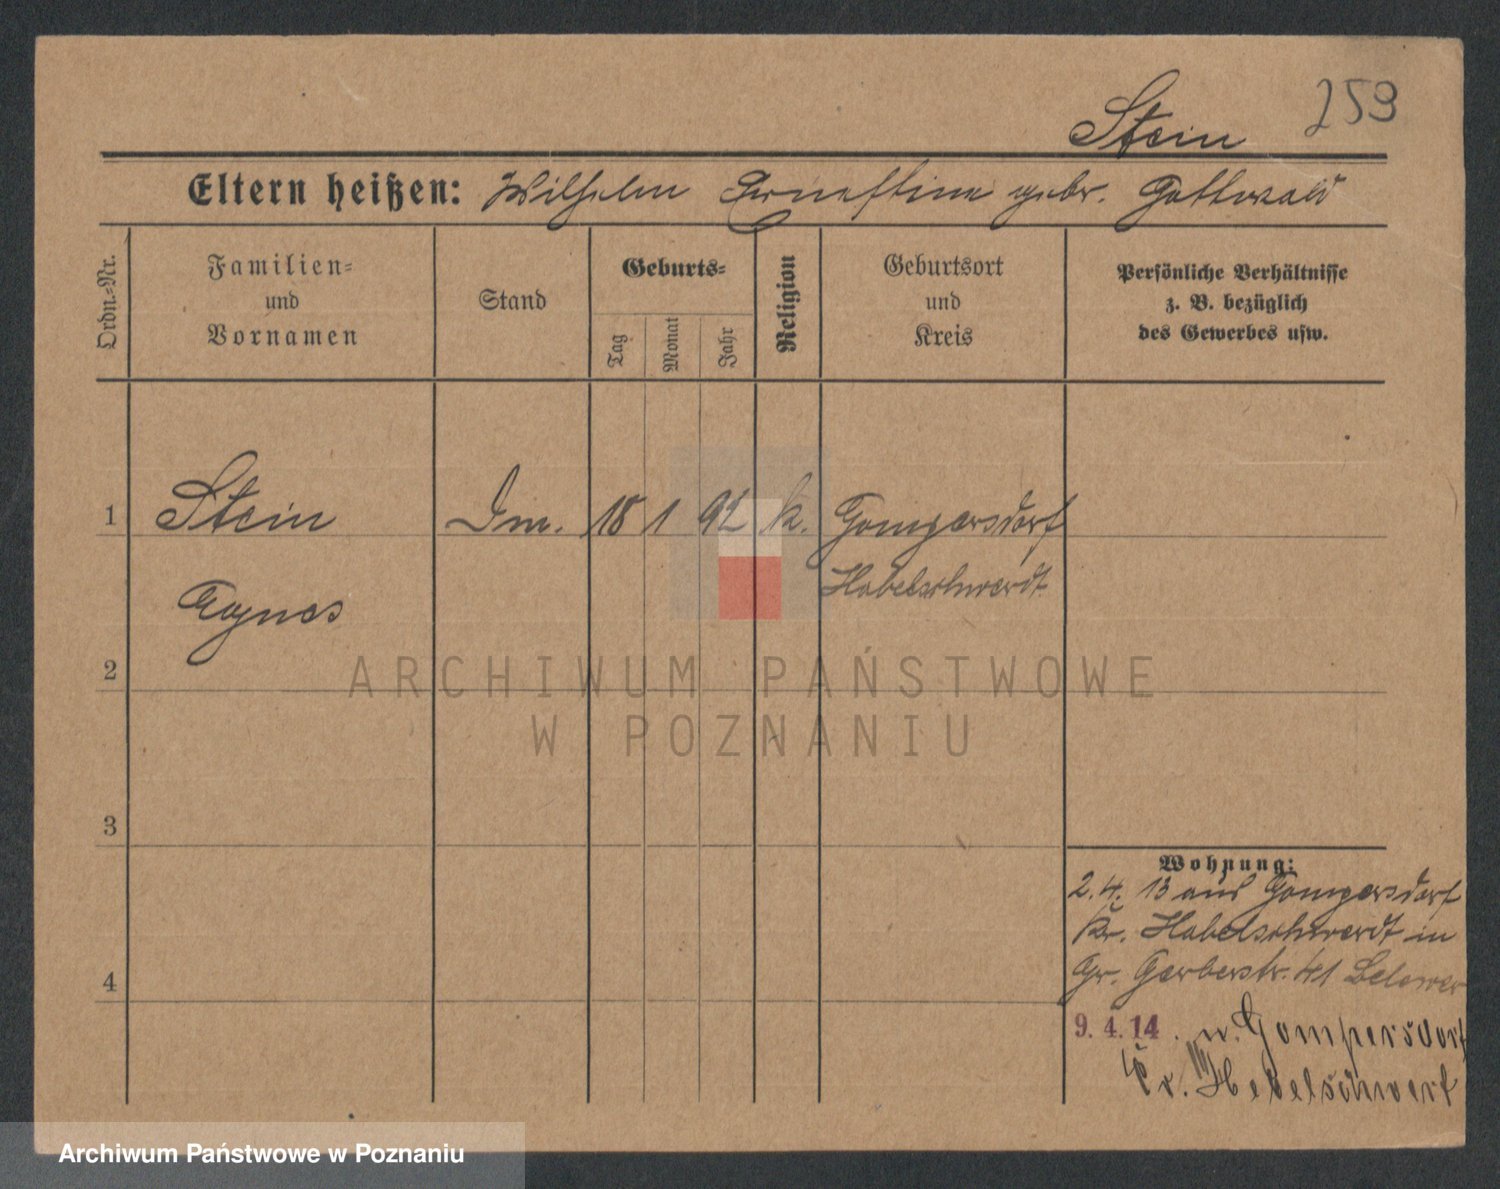 259
Stein
Eltern heißen: Wilhelm Ernestine gebr. Gottwald
Ordn.-Nr.
Familien-
und
Vornamen
Stand
Geburts-
Tag
Monat
Jahr
Religion
Geburtsort
und
Kreis
Persönliche Verhältnisse
z. B. bezüglich
des Gewerbes usw.
1 Stein 18 1 92 k. Gompersdorf
Habelschwerdt
Agnes
2
ARCHIWUM PAŃSTWOWE
W POZNANIU
3
Wohnung:
2.4. 13 aus Gompersdorf
Kr. Habelschwerdt in
Gr. Gerberstr. 41
4
9. 4. 14 . n. Gompersdorf
Kr. Hebelschwert
Archiwum Państwowe w Poznaniu